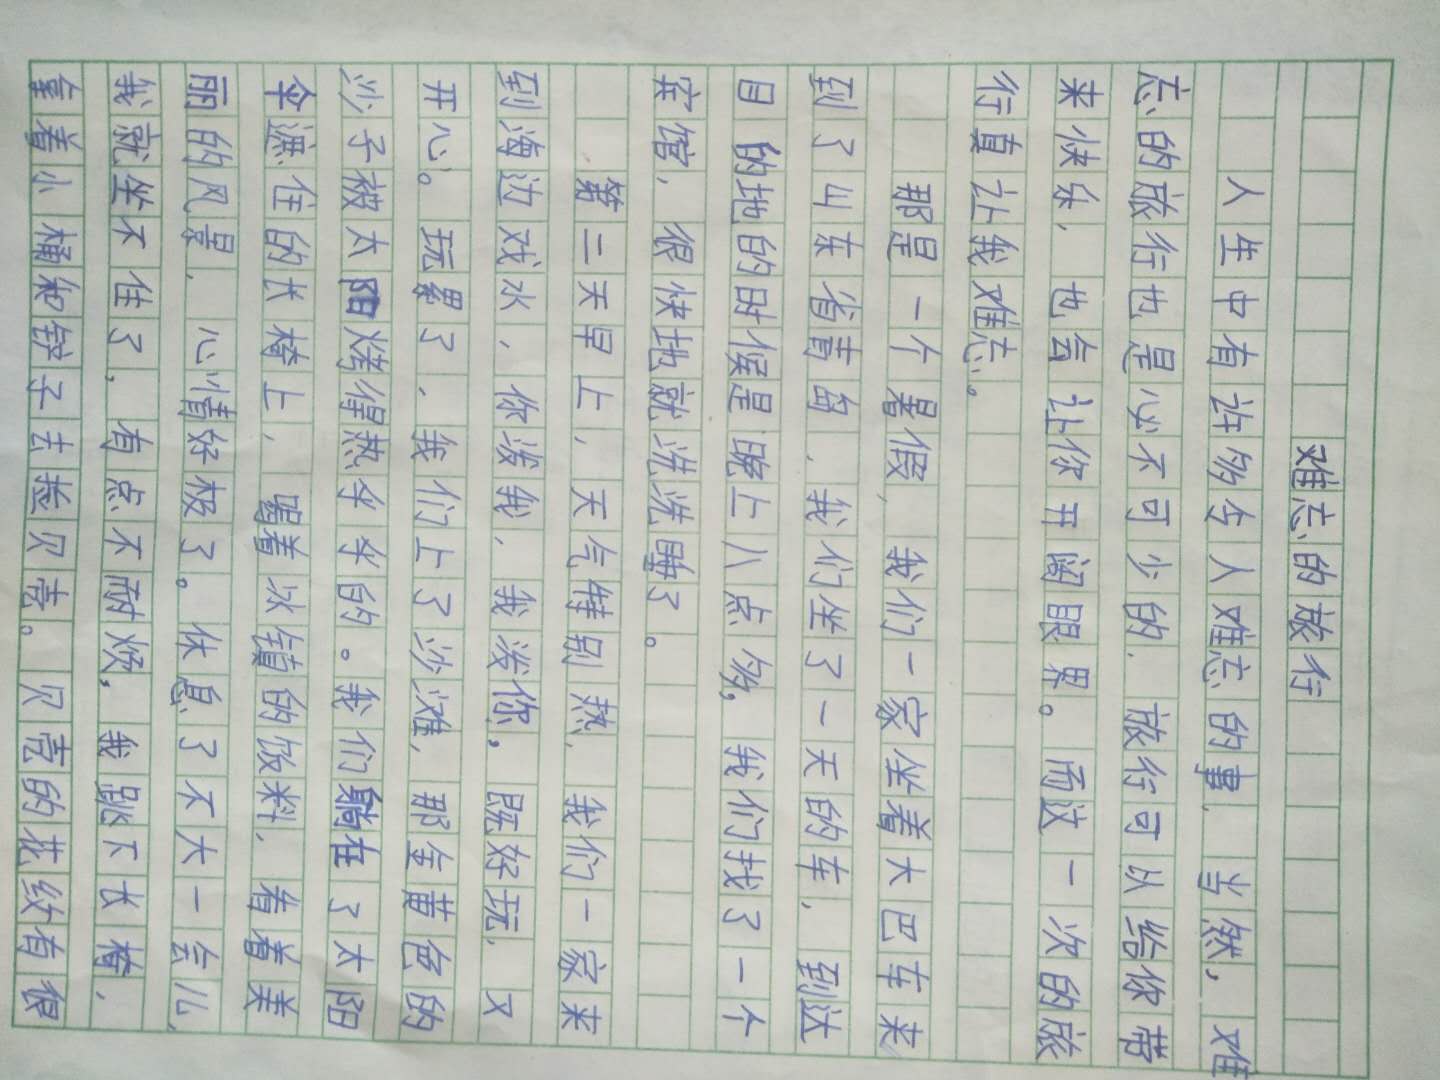 难忘的旅行
人生中有许多令人难忘的事,当然,难
忘的旅行也是必不可少的.旅行可以给你带
来快乐,也会让你开阔眼界。而这一次的旅
行真让我难忘。
那是一个暑假,我们一家坐着大巴车来
到了山东省青岛,我们坐了一天的车,到达
目的地的时候是晚上八点多,我们找了一个
宾馆,很快地就洗洗睡了。
第二天早上,天气特别热,我们一家来
到海边戏水,你泼我,我泼你,既好玩,又
开心。玩累了,我们上了沙滩,那金黄色的
沙子被太阳烤得热乎乎的。我们躺在了太阳
伞遮住的长椅上,喝着冰镇的饮料,看着美
丽的风景,心情好极了。休息了不大一会儿,
我就坐不住了,有点不耐烦,我跳下长椅,
拿着小桶和铲子去捡贝壳。贝壳的花纹有很